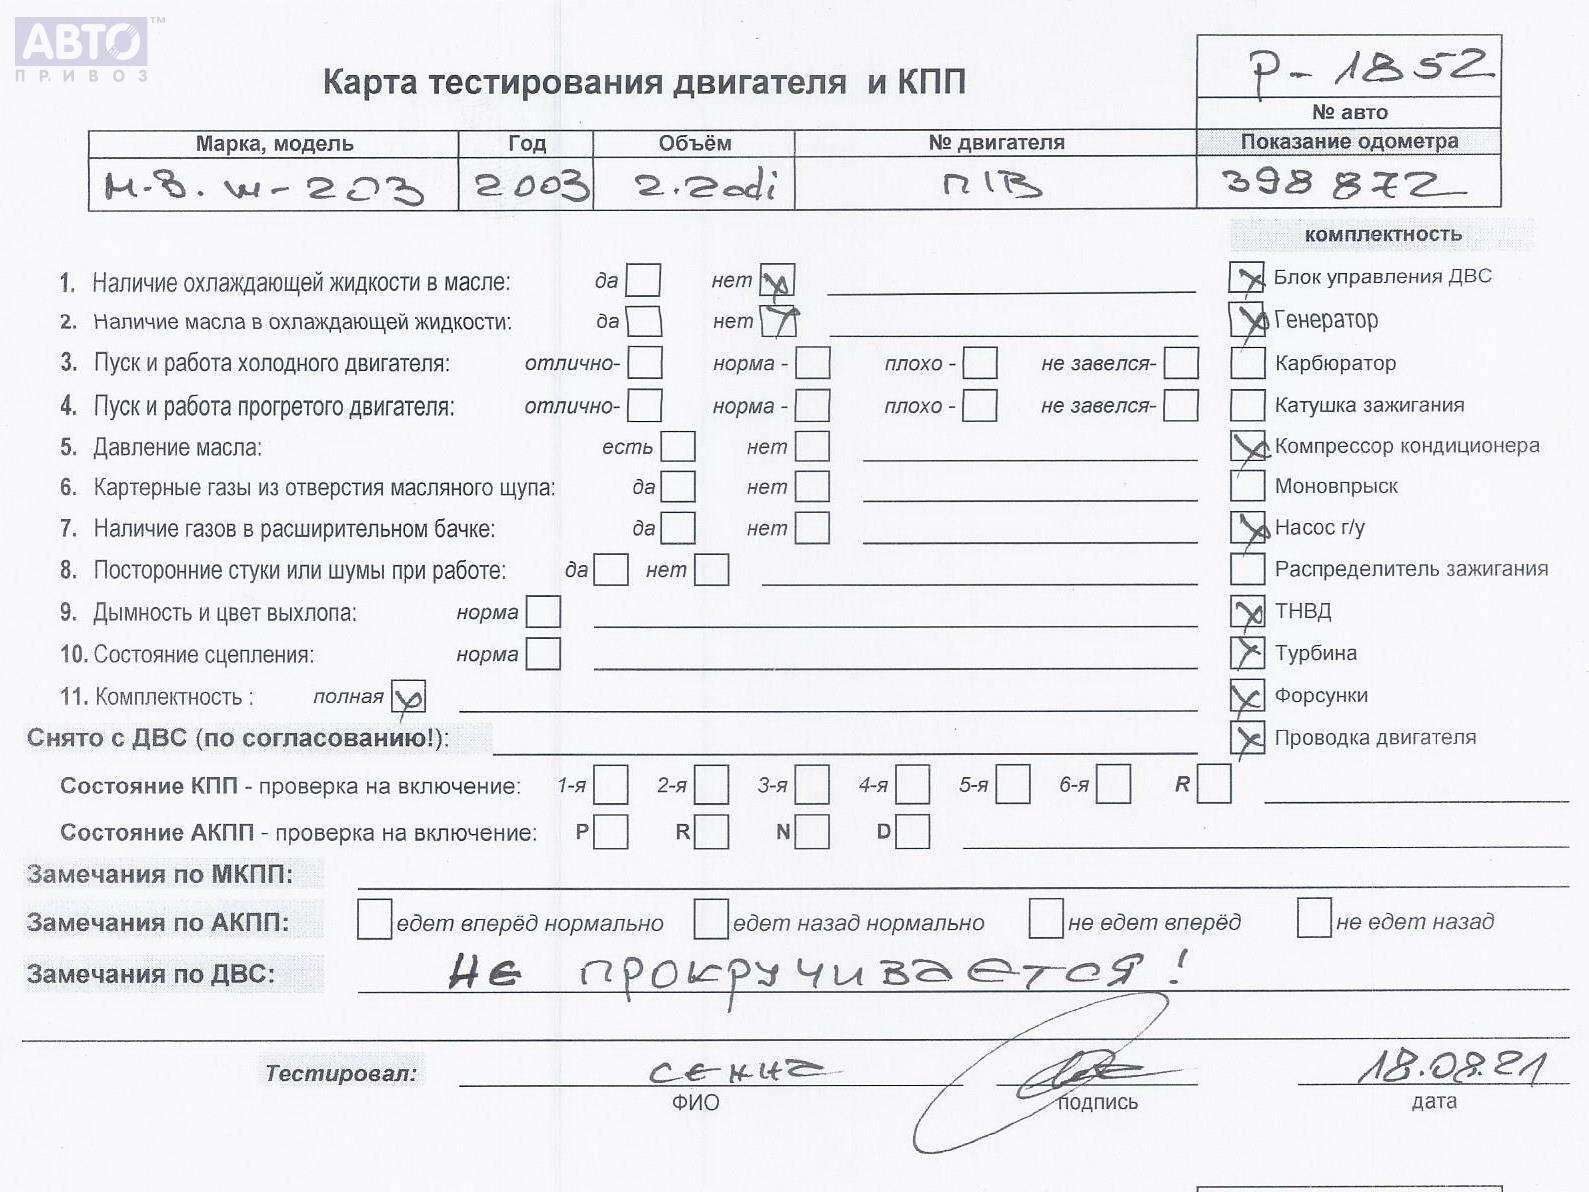 АВТО™
ПРИВОЗ
Р-1852
Карта тестирования двигателя и КПП
№ авто
Марка, модель Год Объём № двигателя Показание одометра
М-В. W-203 2003 2.2cdi П/В 398872
комплектность
1. Наличие охлаждающей жидкости в масле: да нет Блок управления ДВС
2. Наличие масла в охлаждающей жидкости: да нет Генератор
3. Пуск и работа холодного двигателя: отлично- норма - плохо - не завелся- Карбюратор
4. Пуск и работа прогретого двигателя: отлично- норма - плохо - не завелся- Катушка зажигания
5. Давление масла: есть нет Компрессор кондиционера
6. Картерные газы из отверстия масляного щупа: да нет Моновпрыск
7. Наличие газов в расширительном бачке: да нет Насос г/у
8. Посторонние стуки или шумы при работе: да нет Распределитель зажигания
9. Дымность и цвет выхлопа: норма ТНВД
10. Состояние сцепления: норма Турбина
11. Комплектность : полная Форсунки
Снято с ДВС (по согласованию!): Проводка двигателя
Состояние КПП - проверка на включение: 1-я 2-я 3-я 4-я 5-я 6-я R
Состояние АКПП - проверка на включение: P R N D
Замечания по МКПП:
Замечания по АКПП: едет вперёд нормально едет назад нормально не едет вперёд не едет назад
Замечания по ДВС: НЕ ПРОКРУЧИВАЕТСЯ!
Тестировал: 18.08.21
ФИО подпись дата